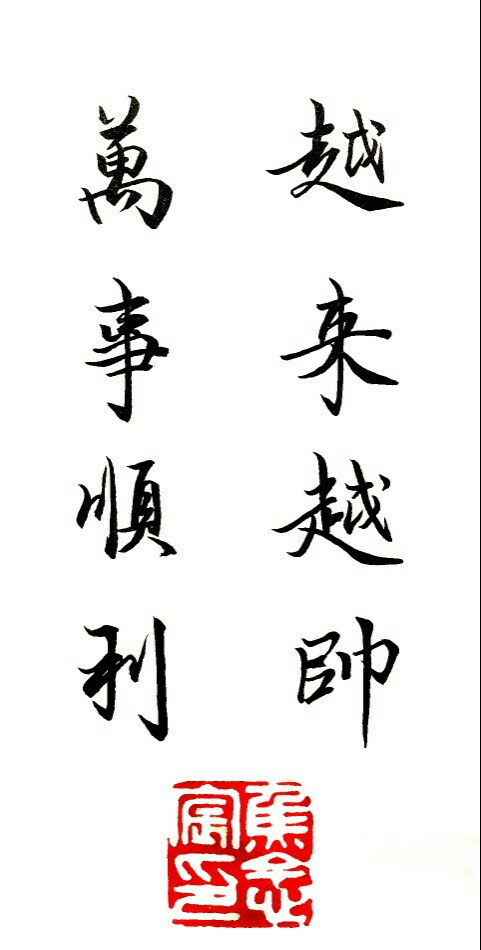 越来越帥
萬事順利